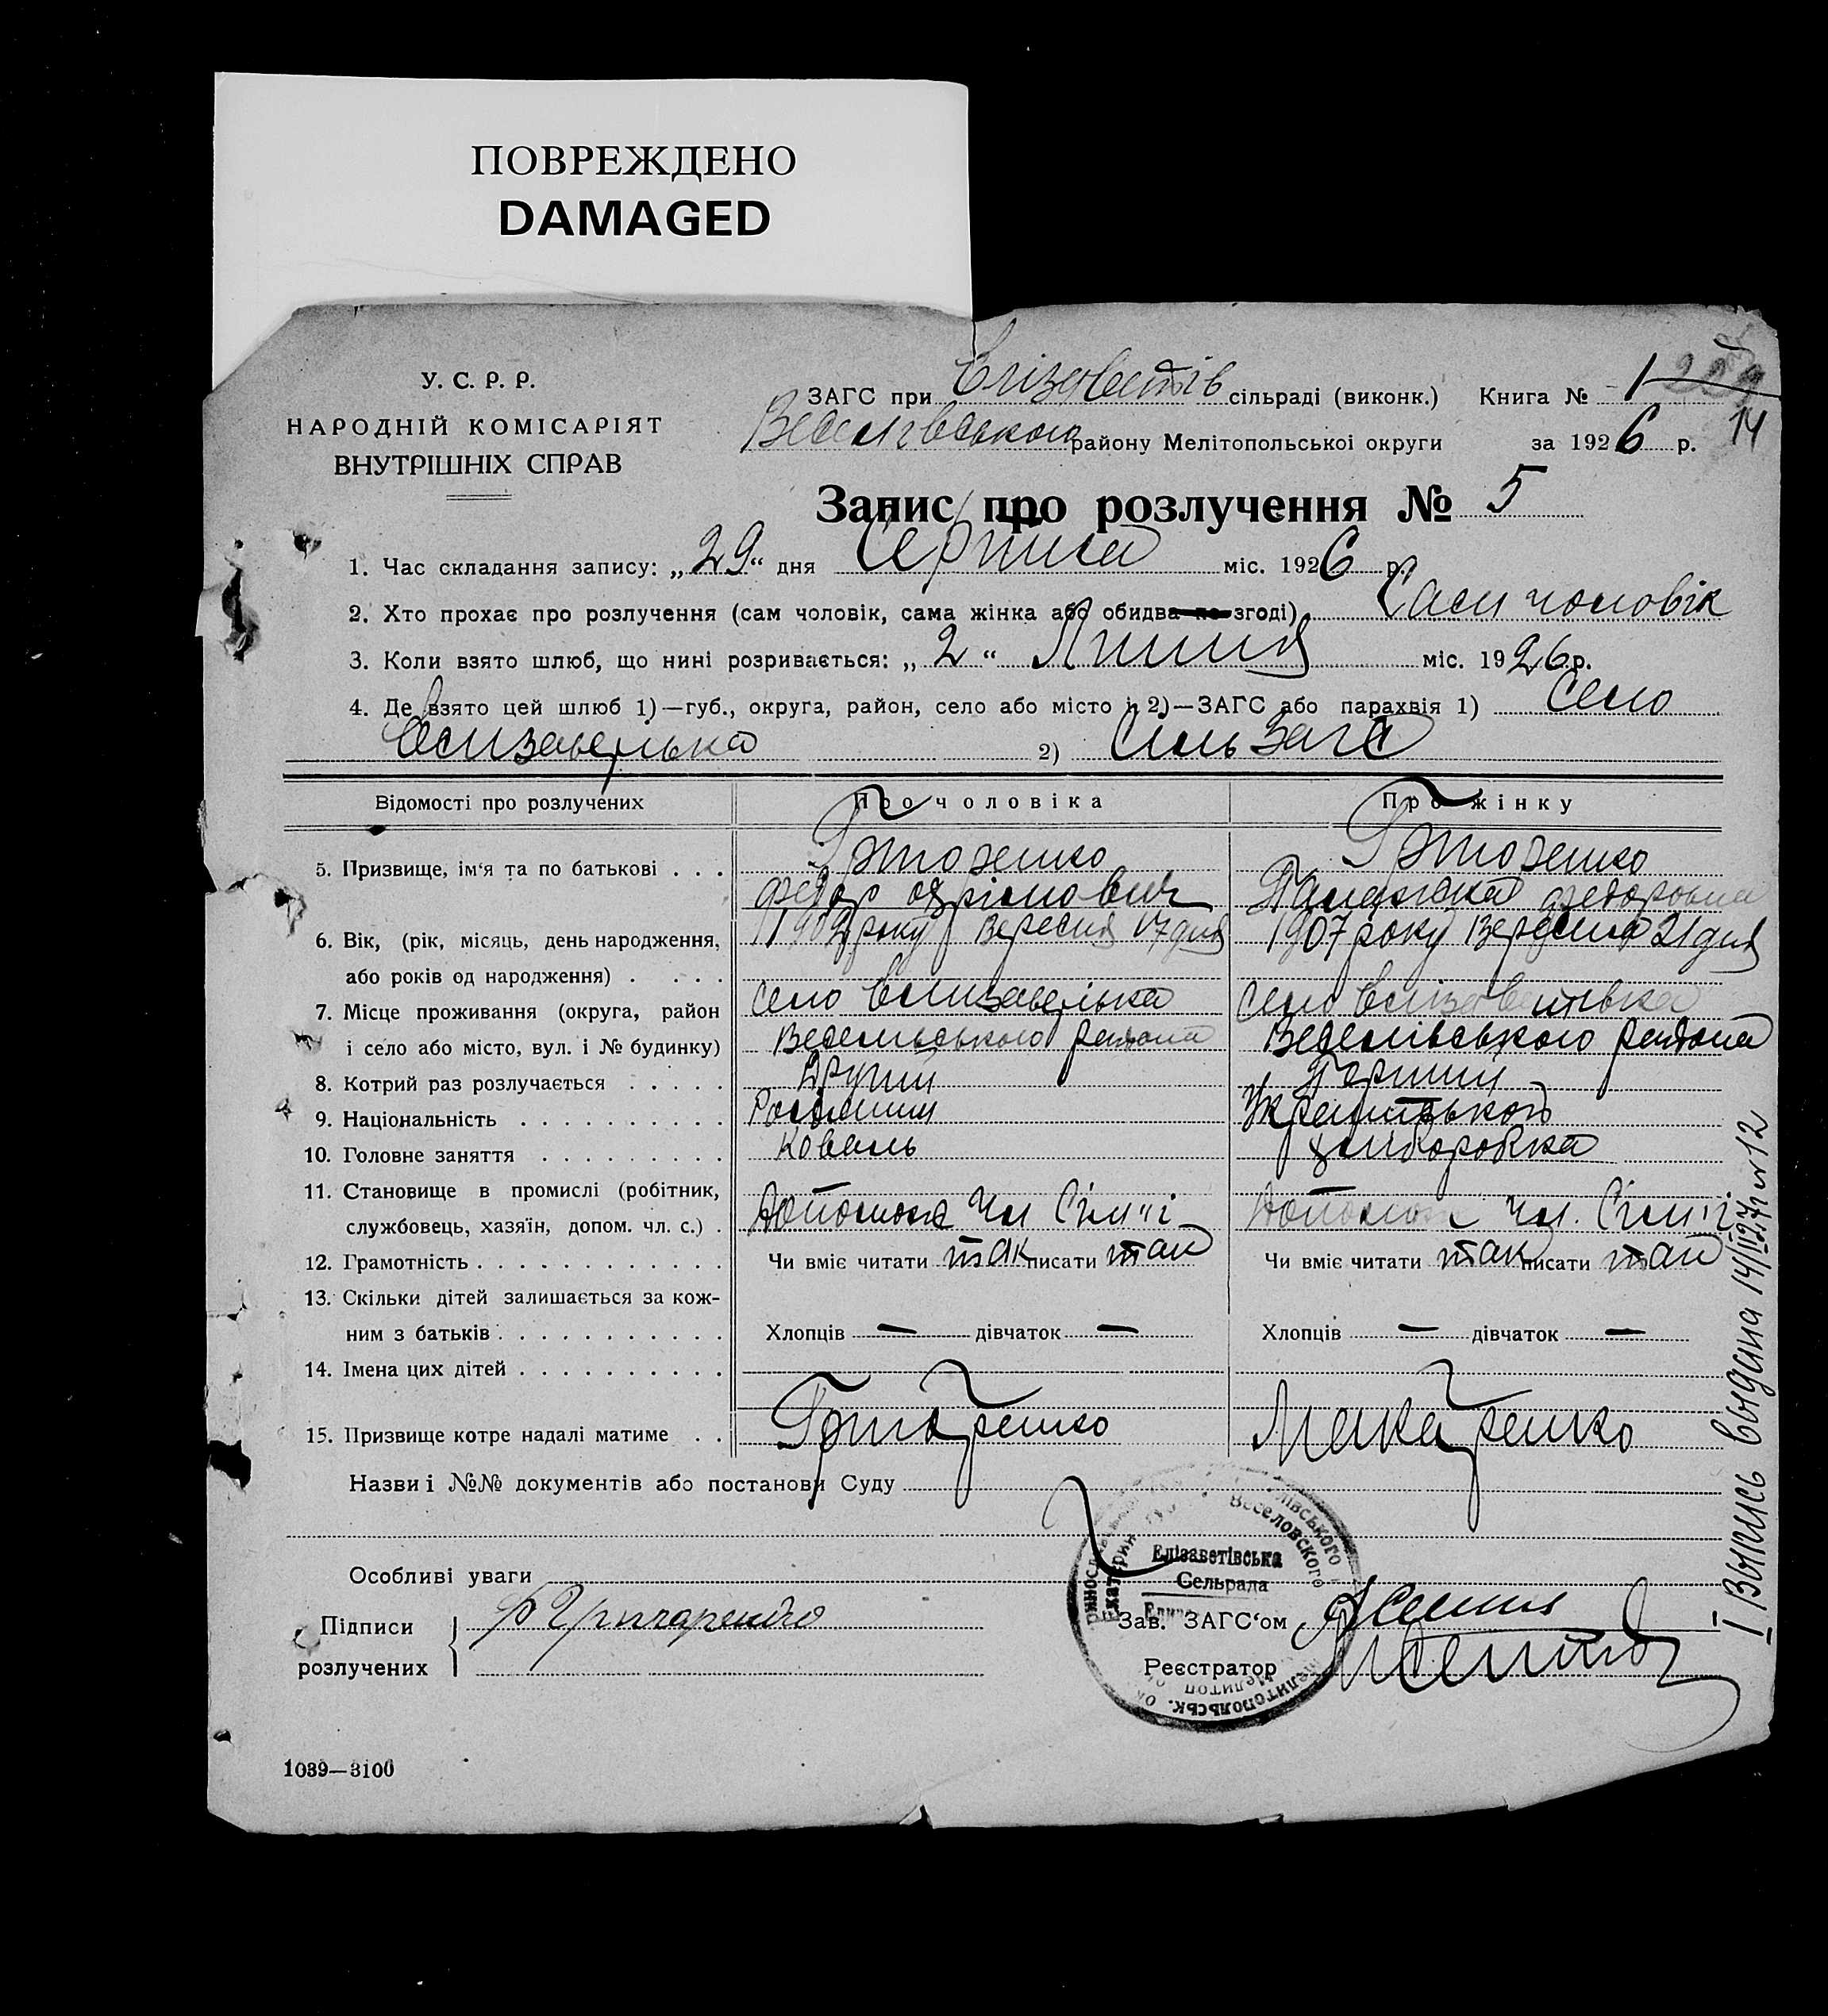 ПОВРЕЖДЕНО
DAMAGED
У. С. Р. Р.
НАРОДНІЙ КОМІСАРІЯТ
ВНУТРІШНІХ СПРАВ
ЗАГС при Єлізаветів сільраді (виконк.) Книга № 1
Веселівського району Мелітопольскої округи за 1926 р. 14
Запис про розлучення № 5
1. Час складання запису: „29“ дня Серпня міс. 1926 р.
2. Хто прохає про розлучення (сам чоловік, сама жінка або обидва по згоді) Сам чоловік
3. Коли взято шлюб, що нині розривається: „2“ Липня міс. 1926 р.
4. Де взято цей шлюб 1)—губ., округа, район, село або місто і 2)—ЗАГС або парахвія 1) Село
2) Сель Загс
Відомості про розлучених Про чоловіка Про жінку
5. Призвище, ім‘я та по батькові . . .
Федор Федоровна
6. Вік, (рік, місяць, день народження, року Вересня 17 дня 1907 року Вересня 21 дня
або років од народження) . . . .
7. Місце проживання (округа, район село село
і село або місто, вул. і № будинку) района Веселівського района
8. Котрий раз розлучається . . . . . Другий Перший
9. Національність . . . . . . . . . .
10. Головне заняття . . . . . . . . . Коваль
11. Становище в промислі (робітник,
службовець, хазяїн, допом. чл. с.) . чл Сім'ї чл. Сім'ї
12. Грамотність . . . . . . . . . . . . Чи вміє читати так писати так Чи вміє читати так писати так
13. Скільки дітей залишається за кож-
ним з батьків . . . . . . . . . . . Хлопців — дівчаток — Хлопців — дівчаток —
14. Імена цих дітей . . . . . . . . . .
15. Призвище котре надалі матиме . . Макаренко
Назви і №№ документів або постанови Суду
Особливі уваги
Підписи
розлучених
Елізаветівська
Сельрада
Веселовского
Зав. ЗАГС‘ом
Реєстратор
І Выпись выдана 14/II 27 г. N 12
1039—3100